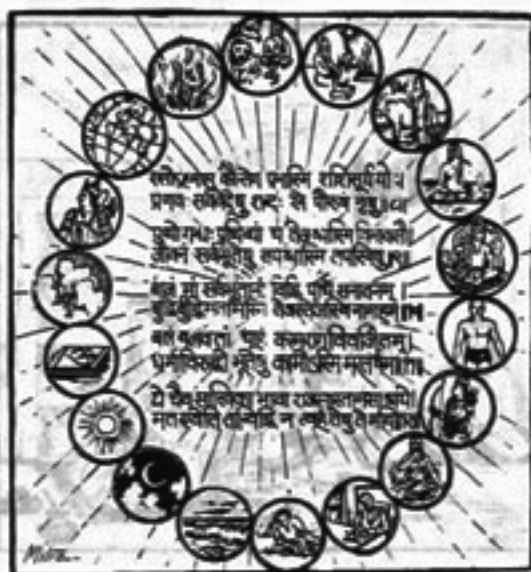 रसोऽहमप्सु कौन्तेय प्रभास्मि शशिसूर्ययोः ।
प्रणवः सर्ववेदेषु शब्दः खे पौरुषं नृषु ॥
पुण्यो गन्धः पृथिव्यां च तेजश्चास्मि विभावसौ ।
जीवनं सर्वभूतेषु तपश्चास्मि तपस्विषु ॥
बीजं मां सर्वभूतानां विद्धि पार्थ सनातनम् ।
बुद्धिर्बुद्धिमतामस्मि तेजस्तेजस्विनामहम् ॥
बलं बलवतां चाहं कामरागविवर्जितम् ।
धर्माविरुद्धो भूतेषु कामोऽस्मि भरतर्षभ ॥
ये चैव सात्त्विका भावा राजसास्तामसाश्च ये ।
मत्त एवेति तान्विद्धि न त्वहं तेषु ते मयि ॥